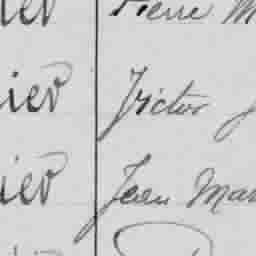 ier Pierre M
ier Victor J
ier Jean Mar